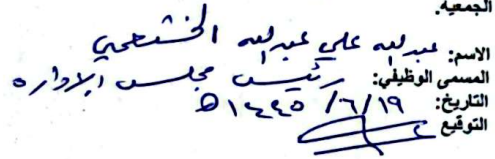 الجمعية.
الاسم: عبدالله علي عبدالله الخشعمي
المسمى الوظيفي: رئيس مجلس الإدارة
التاريخ: ١٩/٦/١٤٤٥هـ
التوقيع